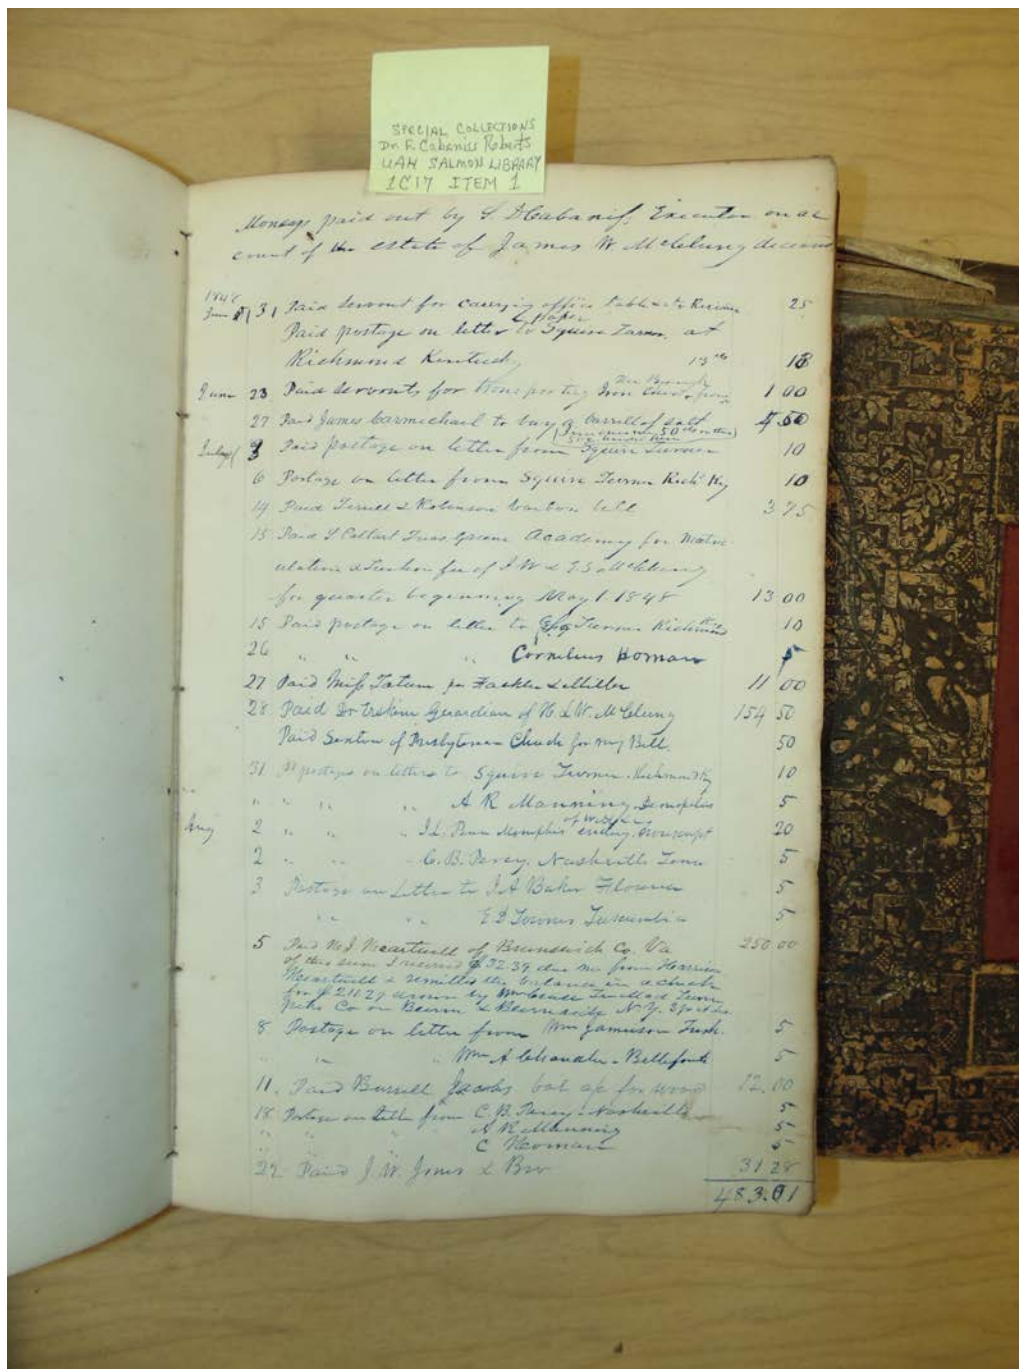 SPECIAL COLLECTIONS
Dr. F. Cabaniss Roberts
UAH SALMON LIBRARY
1C17 ITEM 1
Moneys paid out by S. D. Cabaniss, Executor on ac
count of the estate of James W. McClung deceased
1848
31 Paid Servant for carrying office table &c 25
paper
Paid postage on letter to Squire Turner at
Richmond Kentucky 18
June 23 Paid Servants for transporting Iron Chest from 1 00
27 Paid James Carmichael to buy a barrell of salt 4 50
July 3 Paid postage on letter from Squire Turner 10
6 Postage on letter from Squire Turner Richd Ky 10
14 Paid Terrell & Robinson 3 75
15 Paid S Coltart Treas Greene Academy for Matric
ulation & Tuition fee of J W & McClung
for quarter beginning May 1 1848 13 00
15 Paid postage on letter to Turner Richmond 10
26 " " " Cornelius Homan 5
27 Paid Miss Tatum per Fackler & Miller 11 00
28 Paid Dr Erskine Guardian of McClung 154 50
Paid Sexton of Presbyterian Church for my Bill. 50
31 Pd postage on letters to Squire Turner. Richmond Ky 10
" " " " A R Manning Demopolis 5
Aug 2 " " " Memphis 20
2 " " " C. B. Percy. Nashville Tenn 5
3 Postage on Letter to J A Baker Florence 5
" " " E D Townes Tuscumbia 5
5 Paid Heartwell of Brunswick Co. Va 250 00
of this sum I received $32.39 due me from Harrison
Heartwell & remitted the balance in a check
for drawn by
N.Y.
8 Postage on letter from Wm Jameson 5
" " " Wm A Chandler. Bellefonte 5
11. Paid Burrell Jacobs for wood 12.00
18 Postage on letter from C. B. Percy. Nashville 5
" " " A R Manning 5
" " C Homan 5
22 Paid J. W. Jones & Bro 31 28
483.01